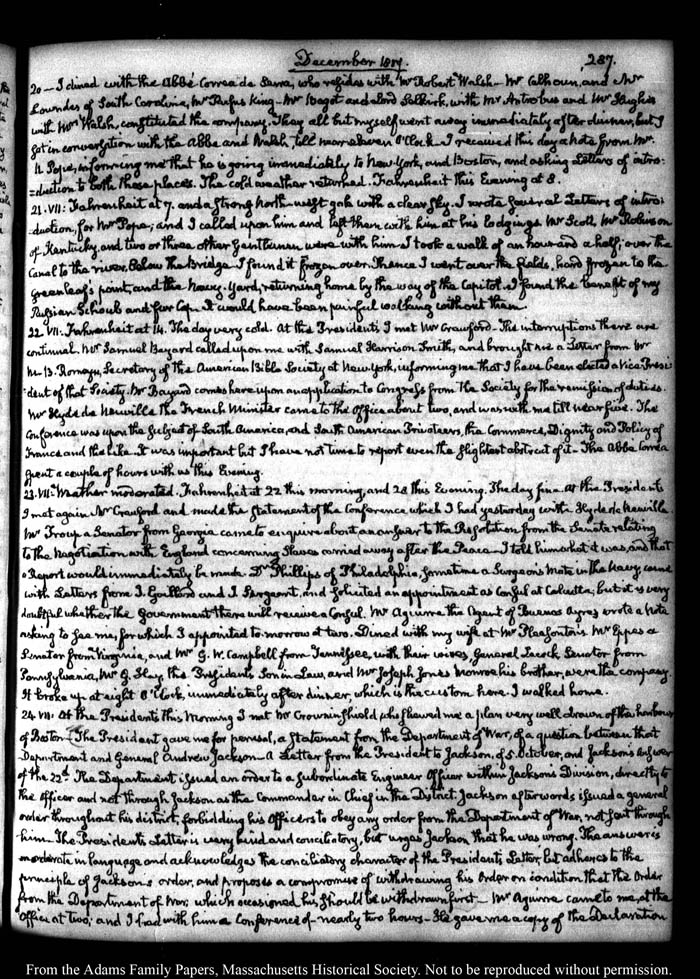 December 1817. 287.
20 — I dined with the Abbé Correa de Serra, who resides with Mr Robert Walsh — Mr Calhoun, and Mr
Lowndes of South Carolina, Mr Rufus King — Mr Bagot and Lord Selkirk, with Mr Antrobus and Mr Hughes
with Mr Walsh, constituted the company. They all but myself went away immediately after dinner, but I
got in conversation with the Abbe and Walsh, till near seven O'Clock — I received this day a Note from Mr
N Pope, informing me that he is going immediately to New-York, and Boston, and asking Letters of intro-
-duction to both those places. The cold weather returned. Fahrenheit this Evening at 8.
21. VII: Fahrenheit at 7. and a strong North-west gale with a clear sky. I wrote several Letters of intro-
duction, for Mr Pope; and I called upon him and left them with him at his lodgings. Mr Scott, Mr Robinson
of Kentucky, and two or three other Gentlemen were with him — I took a walk of an hour and a half; over the
Canal to the river, below the Bridge — I found it frozen over. Thence I went over the fields, hard frozen to the
Greenleaf's point, and the Navy-Yard, returning home by the way of the Capitol. I found the benefit of my
Russian Schoub and fur Cap. It would have been painful walking without them.
22. VII. Fahrenheit at 14. The day very cold. At the Presidents I met Mr Crawford. The interruptions there are
continual. Mr Samuel Bayard called upon me with Samuel Harrison Smith, and brought me a Letter from Mr
Romeyn, Secretary of the American Bible Society at New York, informing me that I have been elected a Vice Presi-
-dent of that Society. Mr Bayard comes here upon an application to Congress from the Society for the remission of duties.
Mr Hyde de Neuville the French Minister came to the office about two, and was with me till near five. The
Conference was upon the subject of South America, and South American Privateers, the Commerce, Dignity and Policy of
France and the like. It was important but I have not time to report even the slightest abstract of it — The Abbe Correa
spent a couple of hours with us this Evening.
23. VII. Weather moderated. Fahrenheit at 22 this morning, and 28 this Evening. The day fine. At the Presidents
I met again Mr Crawford and made the statement of the Conference which I had yesterday with Hyde de Neuville.
Mr Troup a Senator from Georgia came to enquire about an answer to the Resolution from the Senate relating
to the Negotiation with England concerning Slaves carried away after the Peace — I told him what it was, and that
a Report would immediately be made. Dr Phillips of Philadelphia, sometime a Surgeons Mate in the Navy, came
with Letters from J. Gaillard and J. Sergeant, and solicited an appointment as Consul at Calcutta; but it is very
doubtful whether the Government there will receive a Consul. Mr Aguirre the Agent of Buenos Ayres wrote a Note
asking to see me, for which I appointed to-morrow at two. Dined with my wife at Mr Pleasonton's. Mr Eppes a
Senator from Virginia, and Mr G. W. Campbell from Tennessee, with their wives, General Lacock Senator from
Pennsylvania, Mr G. Hay, the Presidents Son in Law, and Mr Joseph Jones Monroe his brother, were the company.
It broke up at eight O'Clock, immediately after dinner, which is the custom here. I walked home.
24. VII. At the Presidents this Morning I met Mr Crowninshield who shewed me a plan very well drawn of the harbour
of Boston — The President gave me for perusal, a statement from the Department of War, of a question between that
Department and General Andrew Jackson — A Letter from the President to Jackson, of 5. October, and Jackson's Answer
of the 22d. The Department issued an order to a subordinate Engineer Officer within Jackson's Division, directly to
the Officer and not through Jackson as the Commander in Chief in the District. Jackson afterwards issued a general
order throughout his district, forbidding his Officers to obey any order from the Department of War, not sent through
him. The Presidents Letter is very kind and conciliatory, but urges Jackson that he was wrong. The answer is
moderate in language and acknowledges the conciliatory character of the Presidents Letter, but adheres to the
principle of Jackson's order, and proposes a compromise of withdrawing his Order on condition that the Order
from the Department of War, which occasioned his, should be withdrawn first — Mr Aguirre came to me, at the
Office at two; and I had with him a Conference of nearly two hours — He gave me a copy of the Declaration
From the Adams Family Papers, Massachusetts Historical Society. Not to be reproduced without permission.